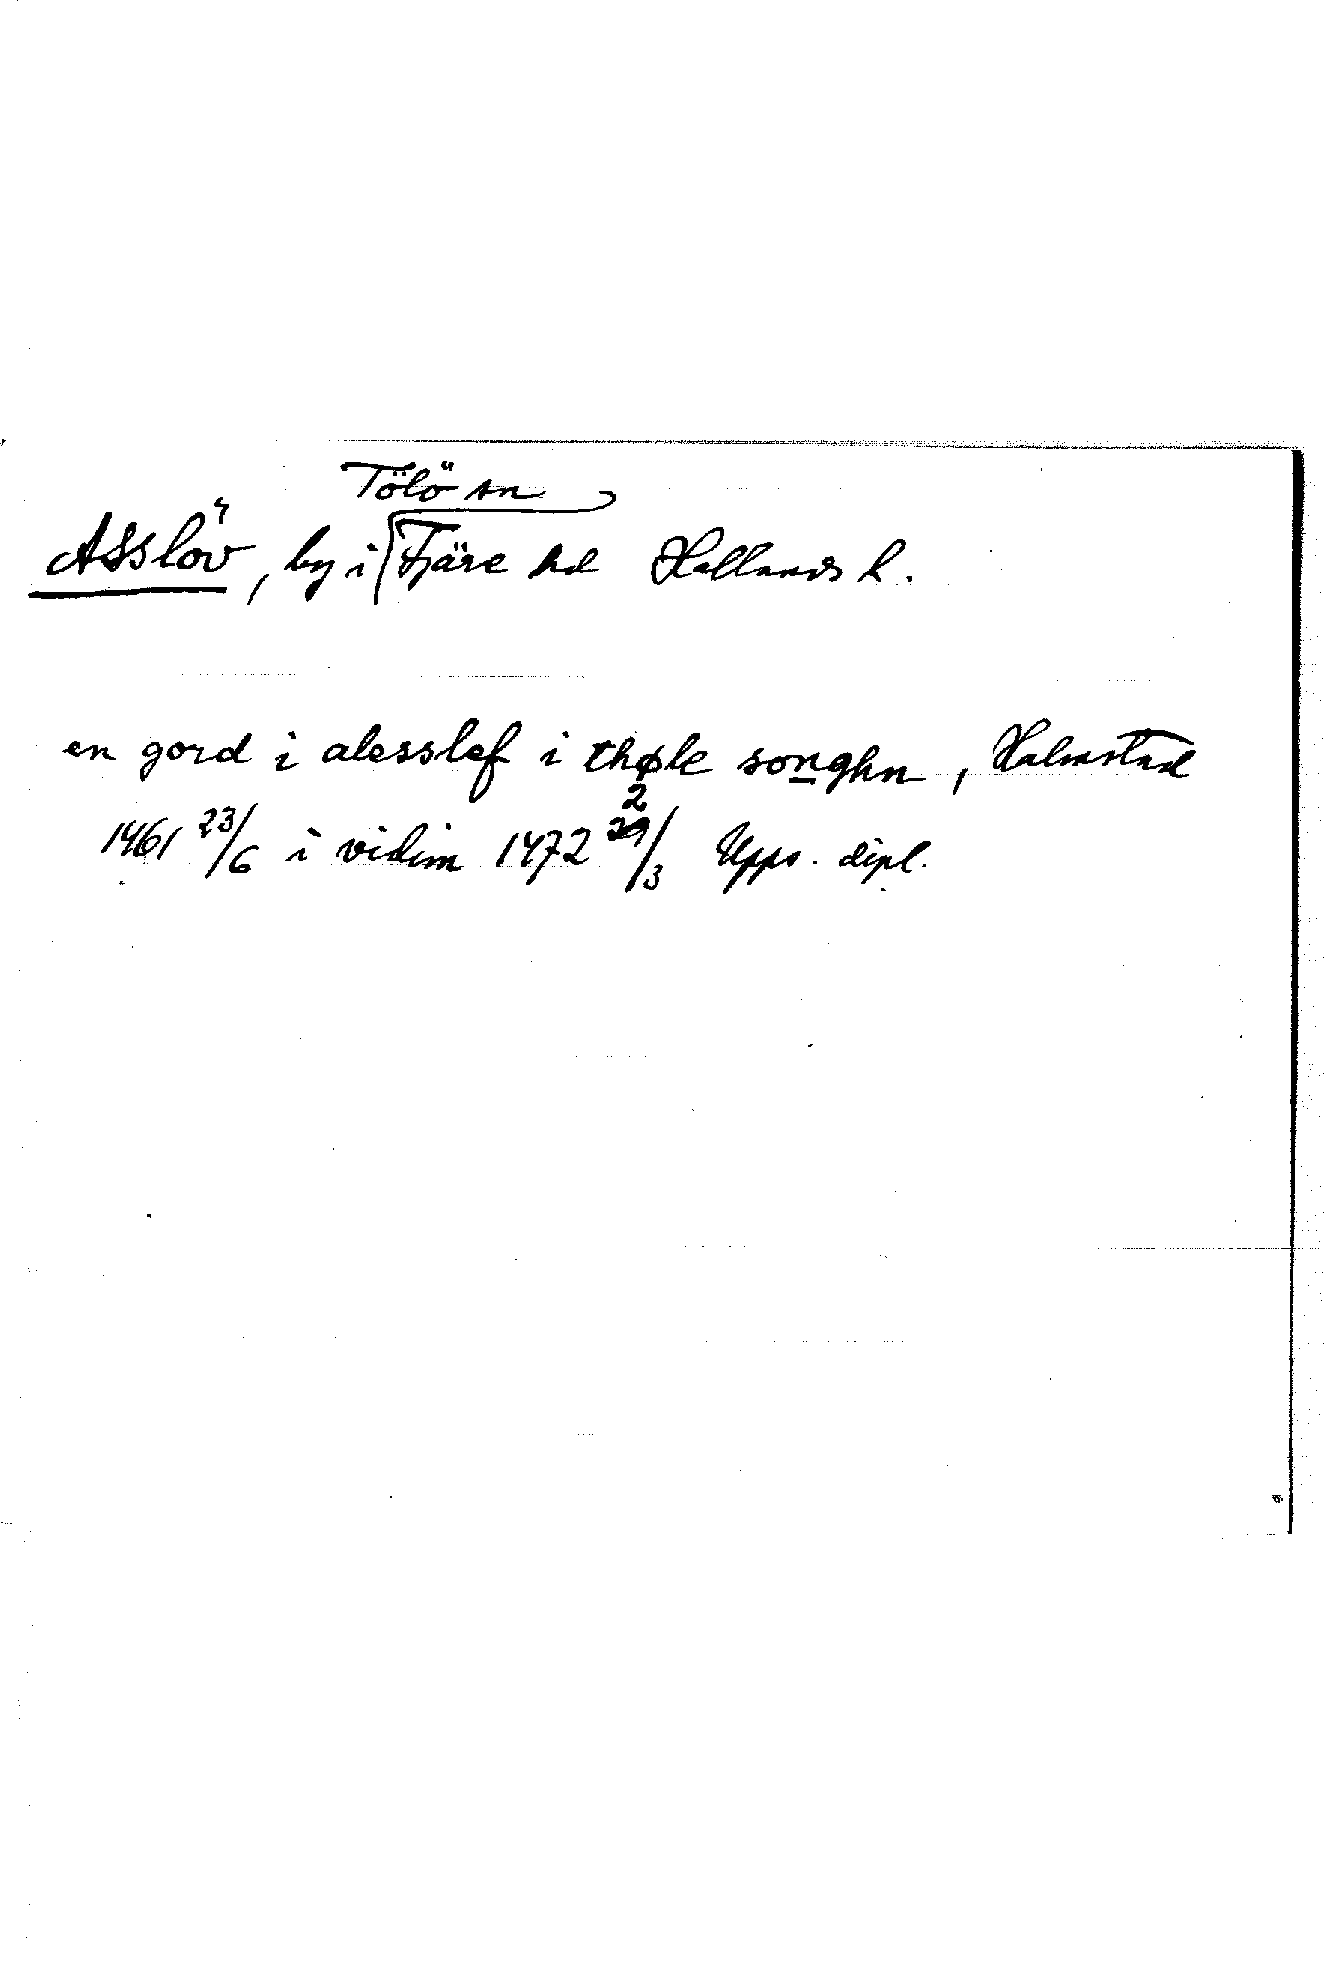 Tölö sn
Asslöv, by i Fjäre hd Hallands l.
en gord i alesslef i thøle songhn, Halmstad
1461 23/6 i vidim 1472 2/3 Upps. dipl.